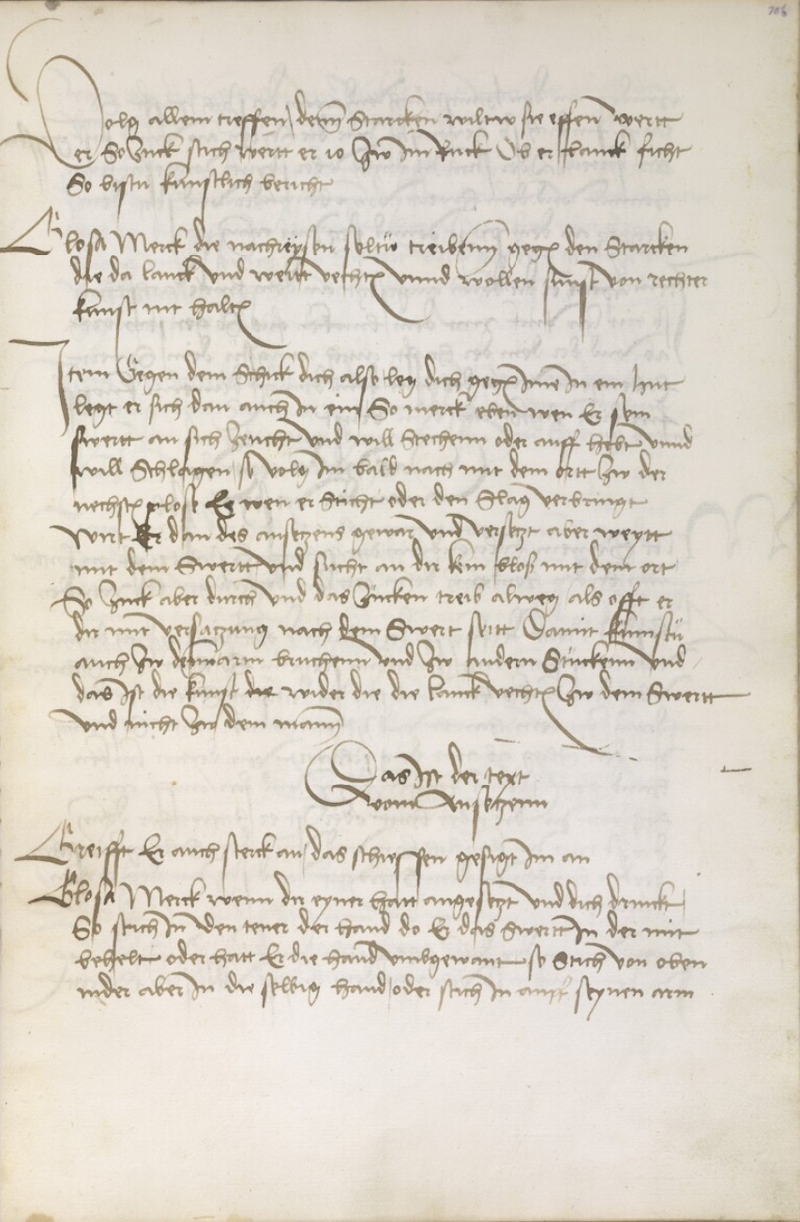 106
Volg allem treffen, denn Starcken wiltw sie effen wertt
er So Zuck stich wertt er io Zw im Ruck Ob er lanck ficht
So bistu kunstlich bericht
Glosa Merck die nachreÿsen soltw treibenn gegen den Starcken
die da lanck vnd weitt vechten vnnd wollen sunst von rechter
kunst nit halten
Item Gegen dem Schick dich also leg dich gegen Ime In ein hut
legt er sich dan auch In ein So merck eben wen Er sein
swertt an sich Zeucht vnd will Stechenn oder auff hebt vnnd
will Schlagen so volg Im bald nach mit dem ortt Zw der
nechsten plosß Ee wen er Sticht oder den Slag verbringt
Wirt Er dan des ansetzens gewar vnd versetzt aber weytt
mit dem Swertt vnd sucht an dir kein blosß mit dem ort
So Zuck aber durch vnd das Zucken treib alweg als offt er
dir mit versatzung nach dem Swert seitt Damit kumstu
auch Zw denn arm bruchenn vnd Zw andern Stuckenn vnd
das Ist die kunst die wider die die lanck vechten Zw dem Swertt
vnd nicht Zw dem mann
Das Ist der text
vom Ansetzenn
Greifft Er auch sterck an, das schiessen gesigt Im an
Glosa Merck wenn dir eyner hatt angesetzt vnd dich druckt
So stich In In den tener der hand do Er das Swertt In der mit
behelt oder hatt Er die hand vmbgewant so Stich von oben
nider aber In die selbig hand oder stich In auff seynen arm